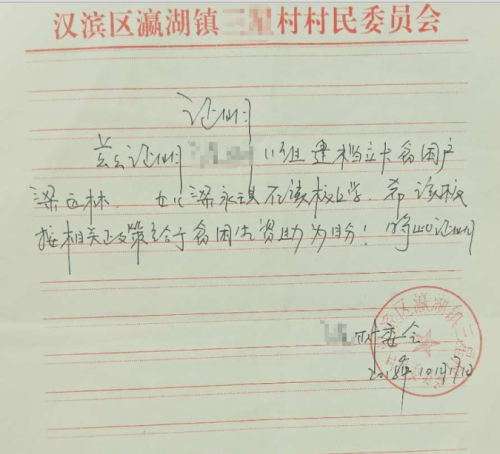 汉滨区瀛湖镇村村民委员会
证明
兹证明 组建档立卡贫困户
梁 林. 女儿梁永 在该校上学. 希该校
按相关政策给于贫困生资助为盼! 特此证明
村委会
2018年10月17日